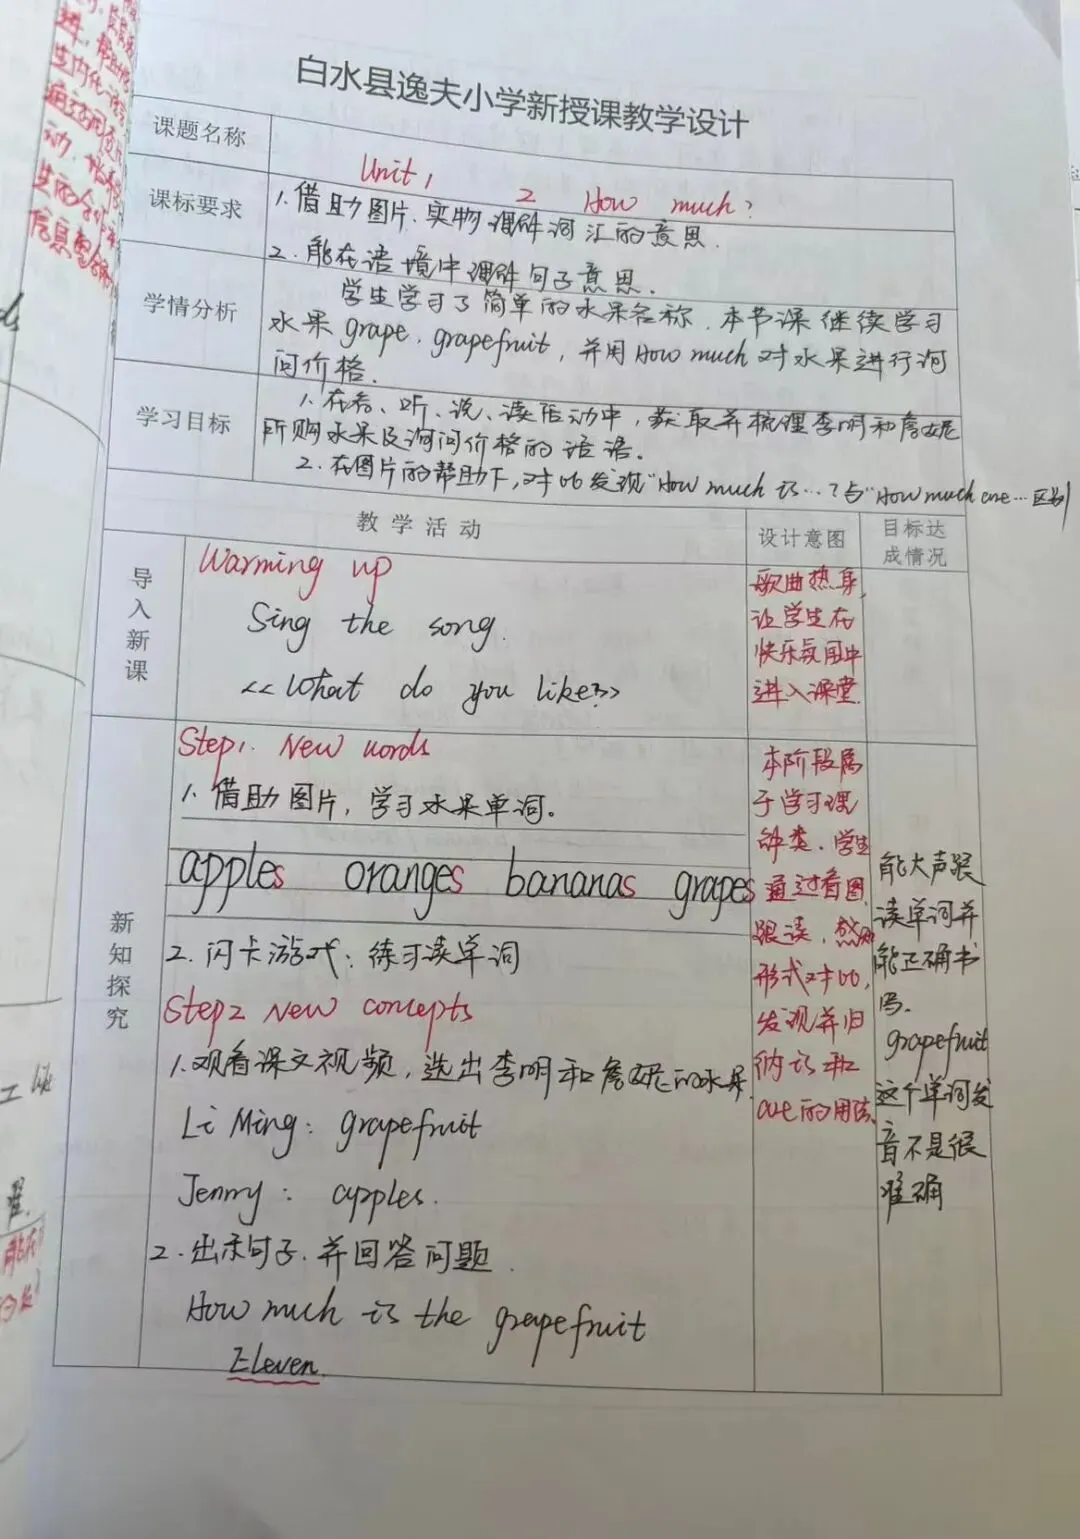 白水县逸夫小学新授课教学设计
课题名称
Unit 1 2 How much?
课标要求
1.借助图片、实物理解词汇的意思.
2.能在语境中理解句子意思.
学情分析
学生学习了简单的水果名称.本节课继续学习
水果grape.grapefruit,并用How much对水果进行询
问价格.
学习目标
1.在看、听、说、读活动中,获取并梳理李明和詹妮
所购水果及询问价格的语语。
2.在图片的帮助下,对比发现"How much is…?与"How much are…区别
教学活动
设计意图
目标达
成情况
导
入
新
课
Warming up
Sing the song.
<<What do you like?>>
歌曲热身,
让学生在
快乐氛围中
进入课堂.
新
知
探
究
Step1. New words
1.借助图片,学习水果单词。
apples oranges bananas grapes
2.闪卡游戏:练习读单词
Step2 New concepts
1.观看课文视频,选出李明和詹妮的水果.
Li Ming: grapefruit
Jenny: apples.
2.出示句子.并回答问题.
How much is the grapefruit
Eleven.
本阶段属
于学习理
解类.学生
通过看图,
跟读.感知
形式对比,
发现并归
纳is和
are的用法.
能大声跟
读单词并
能正确书
写.
grapefruit
这个单词发
音不是很
准确